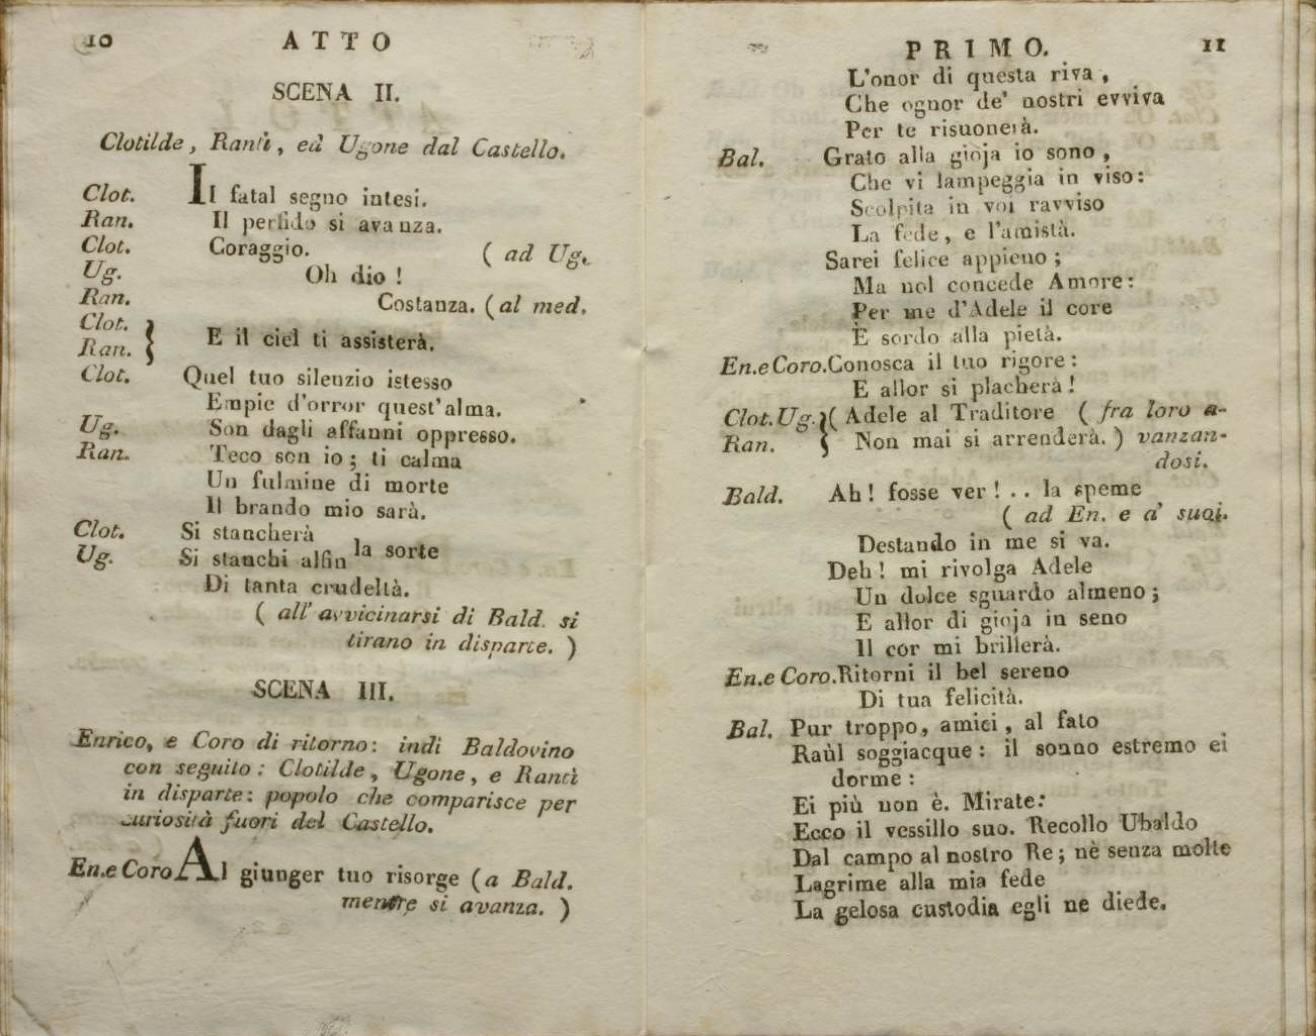 10 ATTO
SCENA II.
Clotilde, Rantì, ed Ugone dal Castello.
Clot. Il fatal segno intesi.
Ran. Il perfido si avanza.
Clot. Coraggio. ( ad Ug.
Ug. Oh dio !
Ran. Costanza. ( al med.
Clot.
Ran. } E il ciel ti assisterà.
Clot. Quel tuo silenzio istesso
Empie d'orror quest'alma.
Ug. Son dagli affanni oppresso.
Ran. Teco son io ; ti calma
Un fulmine di morte
Il brando mio sarà.
Clot. Si stancherà
Ug. Si stanchi alfin la sorte
Di tanta crudeltà.
( all' avvicinarsi di Bald. si
tirano in disparte. )
SCENA III.
Enrico, e Coro di ritorno : indi Baldovino
con seguito : Clotilde, Ugone, e Rantì
in disparte : popolo che comparisce per
curiosità fuori del Castello.
En.e Coro. Al giunger tuo risorge ( a Bald.
mentre si avanza. )
PRIMO. 11
L'onor di questa riva ,
Che ognor de' nostri evviva
Per te risuonerà.
Bal. Grato alla gioja io sono ,
Che vi lampeggia in viso :
Scolpita in voi ravviso
La fede, e l'amistà.
Sarei felice appieno ;
Ma nol concede Amore :
Per me d'Adele il core
È sordo alla pietà.
En.e Coro. Conosca il tuo rigore :
E allor si placherà !
Clot. Ug. } ( Adele al Traditore ( fra loro a-
Ran. } Non mai si arrenderà. ) vanzan-
dosi.
Bald. Ah ! fosse ver ! . . la speme
( ad En. e a' suoi.
Destando in me si va.
Deh ! mi rivolga Adele
Un dolce sguardo almeno ;
E allor di gioja in seno
Il cor mi brillerà.
En.e Coro. Ritorni il bel sereno
Di tua felicità.
Bal. Pur troppo, amici , al fato
Raùl soggiacque : il sonno estremo ei
dorme :
Ei più non è. Mirate :
Ecco il vessillo suo. Recollo Ubaldo
Dal campo al nostro Re ; nè senza molte
Lagrime alla mia fede
La gelosa custodia egli ne diede.